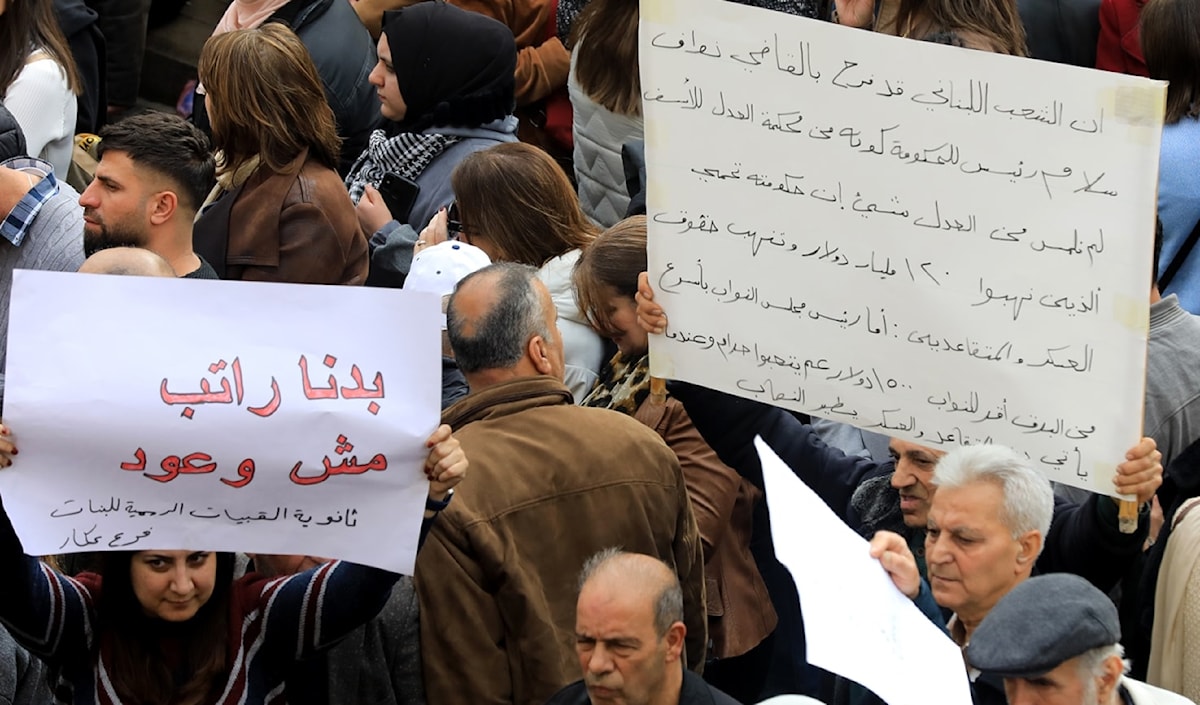 بدنا راتب
مش وعود
ثانوية القبيات الرسمية للبنات
فرع عكار
ان الشعب اللبناني قد فرح بالقاضي نواف
سلام رئيس للحكومة كونه من محكمة العدل للأسف
لم نلمس من العدل شيئ. ان حكومته تحمي
الذين نهبوا ١٢٠ مليار دولار وتنهب حقوق
العسكر والمتقاعدين: أما رئيس مجلس النواب بأسرع
من البرق أقر للنواب ١٥٠٠ دولار عم يتعبوا حرام وعندما
يأتي التقاعد والعسكر يطير النصاب